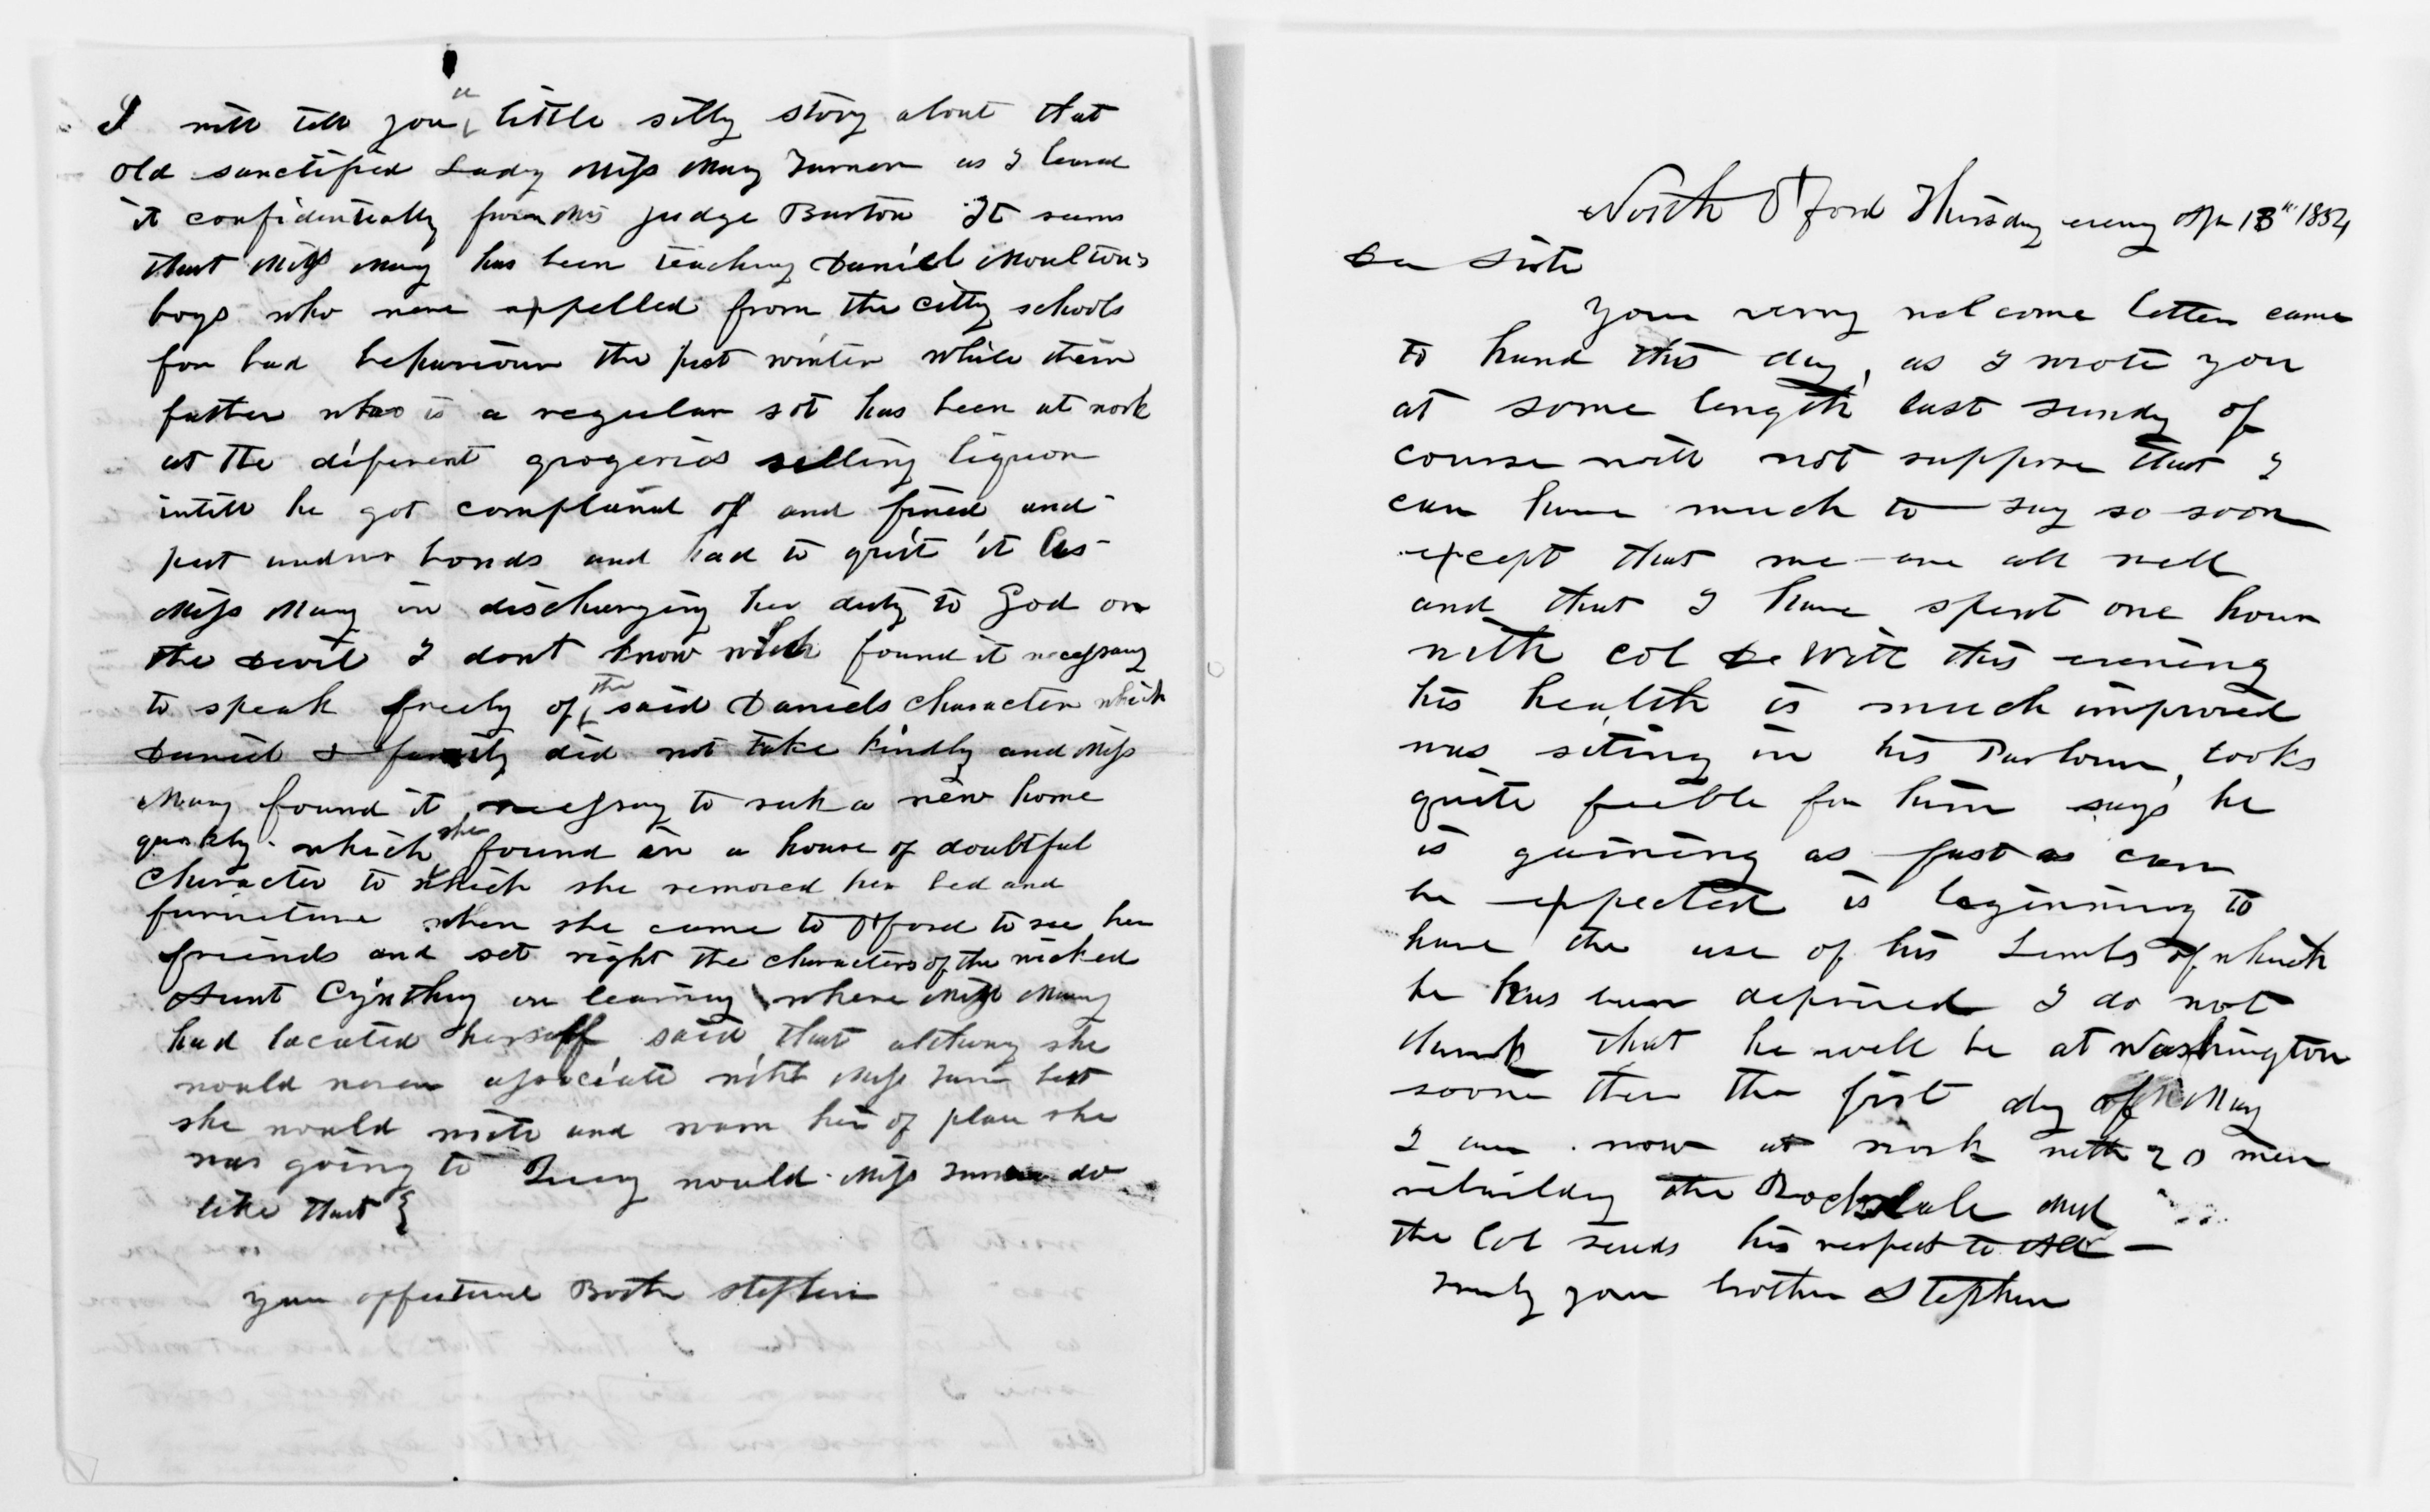 I will tell you a little silly story about that
old sanctified Lady Miss Mary Turner as I learnd
it confidentially from Mrs Judge Barton It seems
that Miss Mary has been teaching Daniel Moultons
boys who were expelled from the citty schools
for bad behaviour the past winter while their
father who is a regular sot has been at work
at the diferent grogeries selling liquor
intill he got complaind of and fined and
put under bonds and had to quit it
Miss Mary in discharging her duty to God or
the Devil I dont know which found it necessary
to speak freely of the said Daniels Character which
Daniel & family did not take kindly and Miss
Mary found it necessary to seek a new home
quickly which she found in a house of doubtful
Character to which she removed her bed and
furniture when she came to Oxford to see her
friends and set right the characters of the wicked
Aunt Cynthy on learning where Miss Mary
had located herself said that althoug she
would never associate with Miss Turn but
she would write and warn her of place she
was going to would Miss Turner do
like that
your affectunel Broth Stephen
North Oxford Thursday eveng Apr 13th 1854
Dear Sister
Your verry welcome letter came
to hand this day, as I wrote you
at some length last sundy of
course will not suppose that I
can have much to say so soon
except that we are all well
and that I have spent one hour
with col De Witt this evening
his health is much improved
was siting in his Parlour, looks
quite feeble for him says he
is gaining as fast as can
be expected is beginning to
have the use of his Limbs of which
he has been deprived I do not
think that he will be at Washington
sooner then the first dy of May
I am now at work with 20 men
rebuildng the Rochdale Mill
the Col sends his respect to All —
Truly your brother Stephen